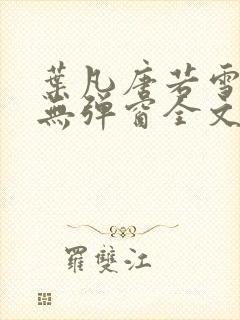 葉凡唐若雪
無彈窗全文
羅雙江